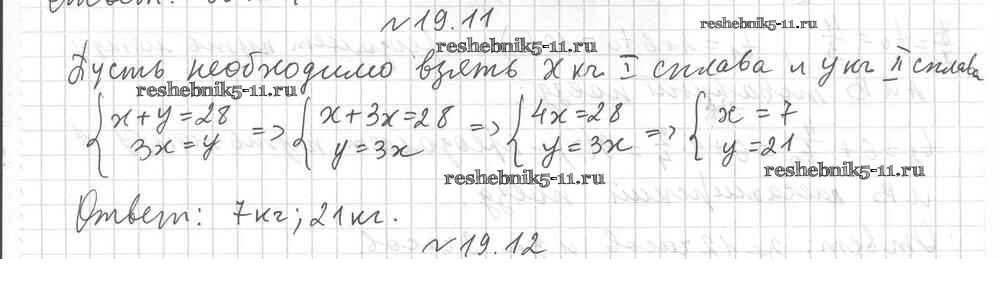 № 19.11
reshebnik5-11.ru
reshebnik5-11.ru
Пусть необходимо взять x кг I сплава и y кг II сплава
reshebnik5-11.ru
{ x+y=28 => { x+3x=28 => { 4x=28 => { x=7
3x=y y=3x y=3x y=21
reshebnik5-11.ru
reshebnik5-11.ru
Ответ: 7кг; 21кг.
№ 19.12